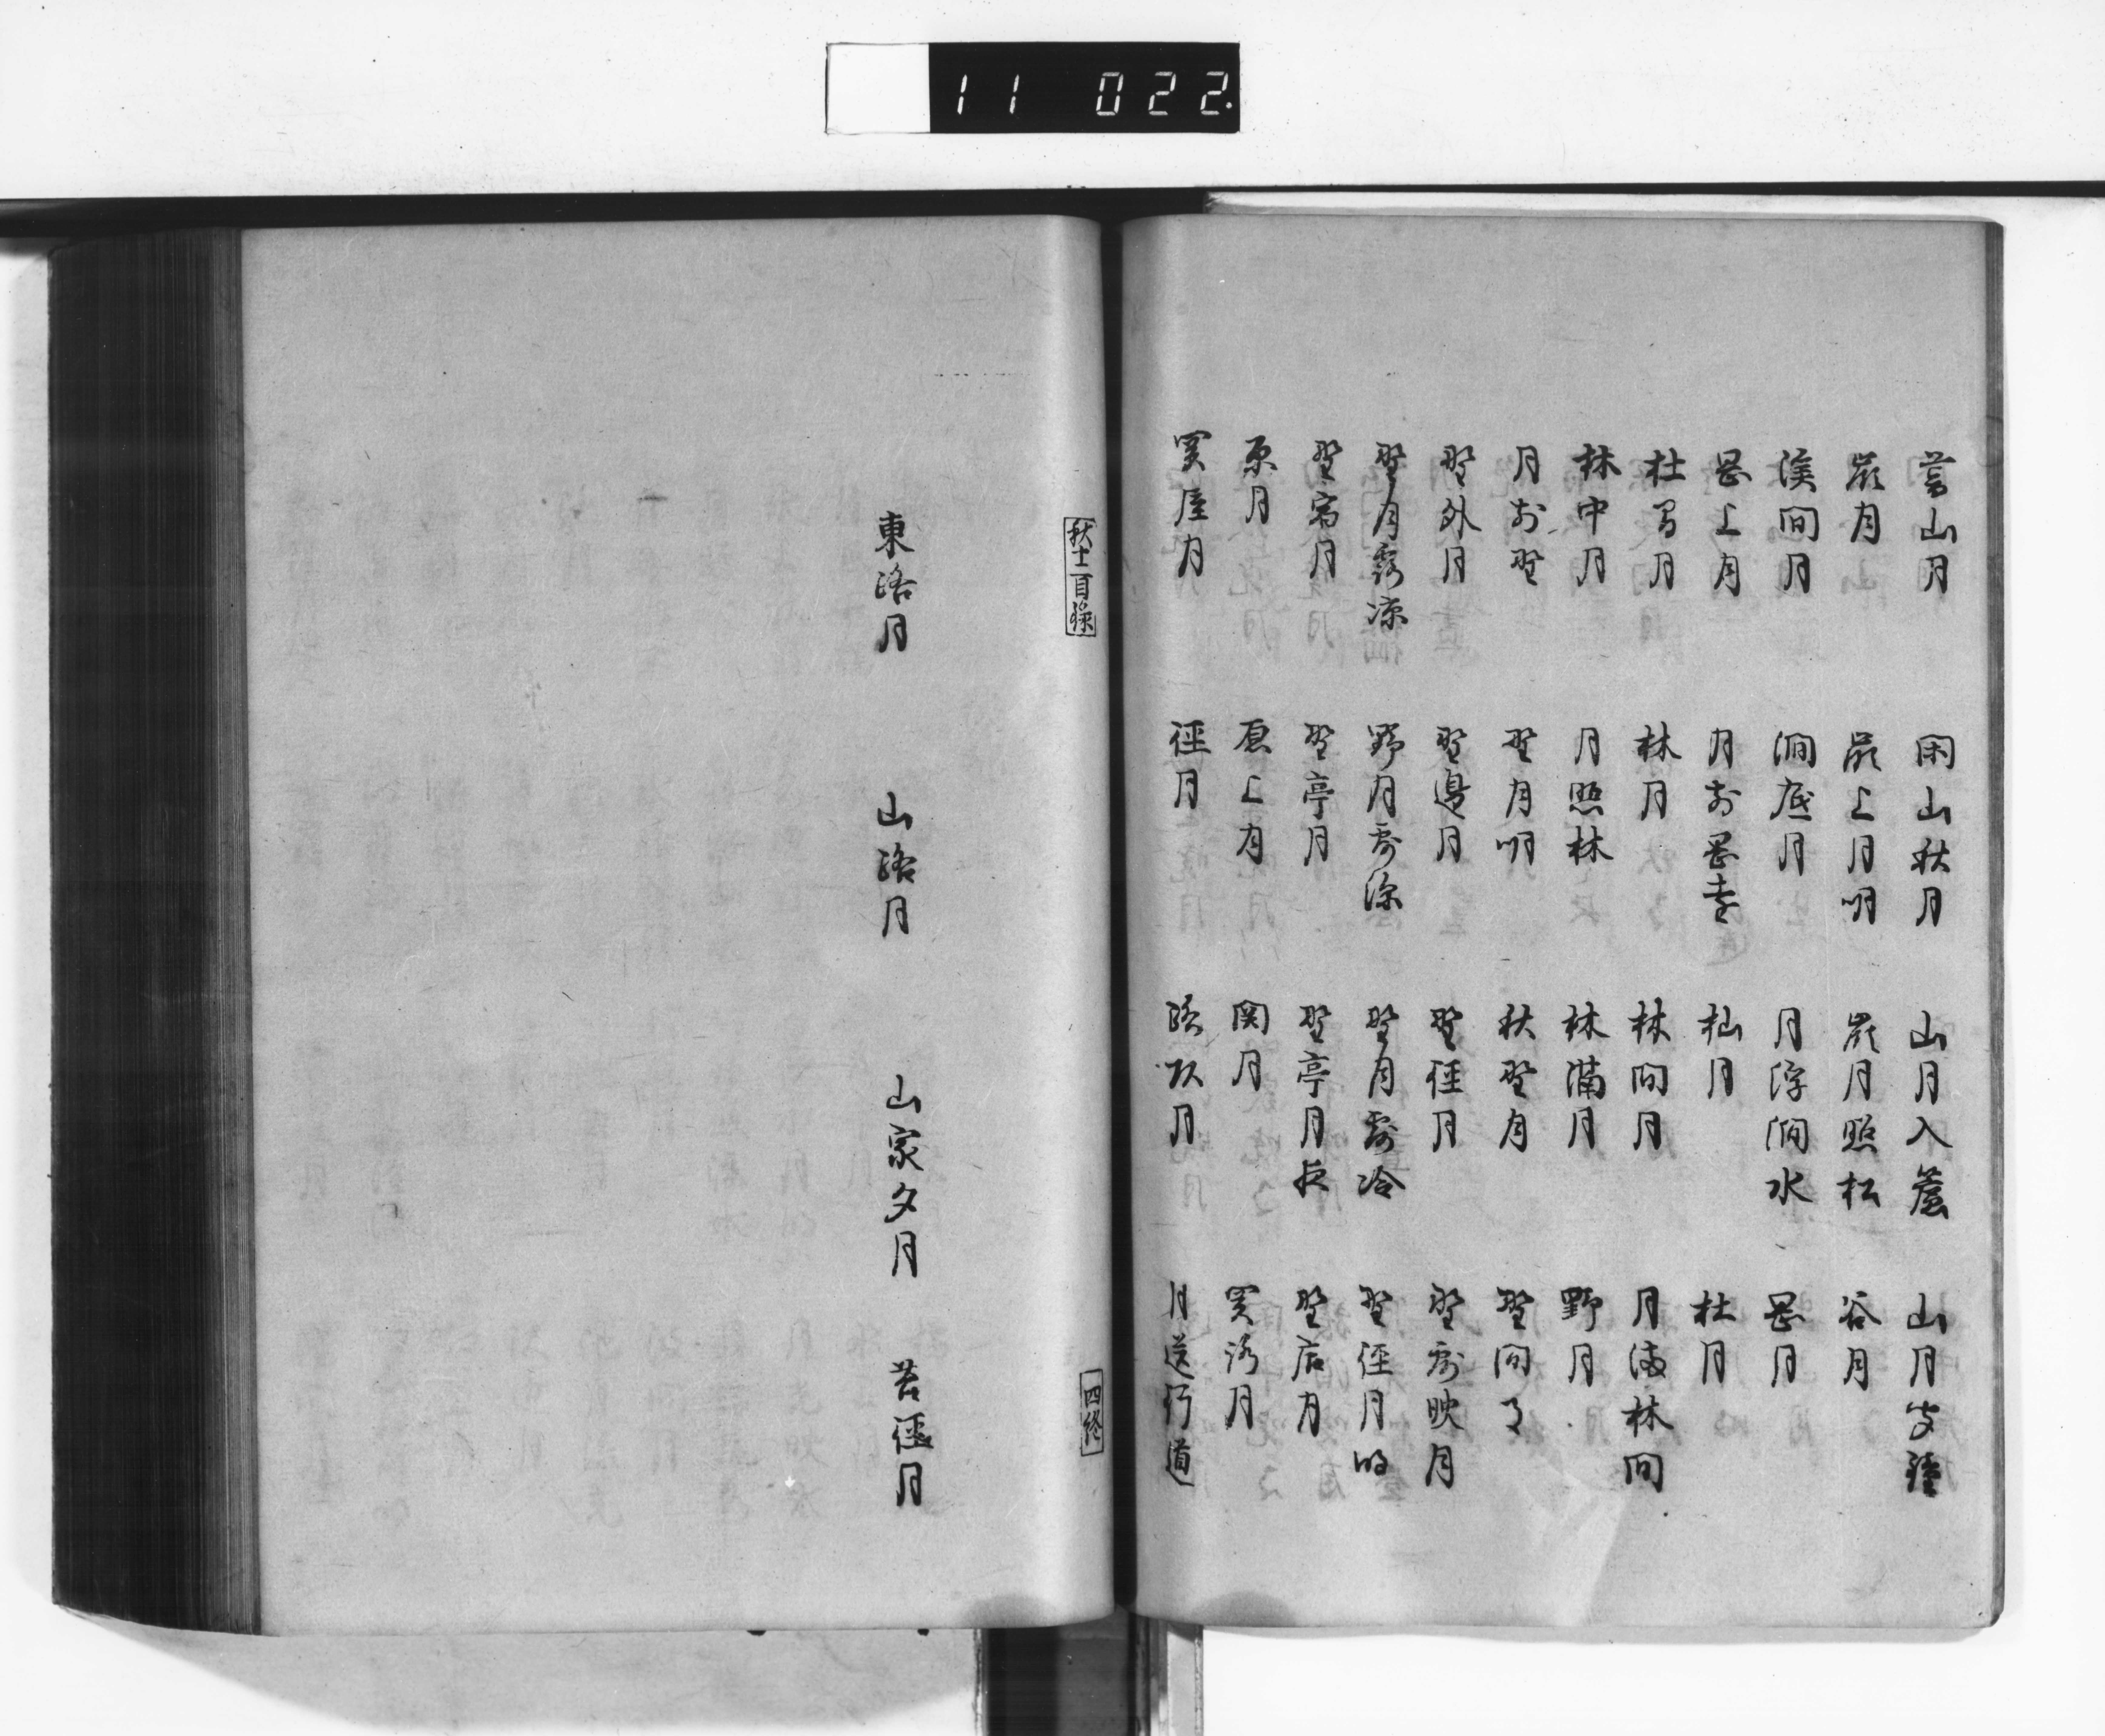 11 022.
山月
閑山秋月
山月入簷
山月
嵐月
嵐上月明
嵐月照松
谷月
渓間月
澗底月
月浮澗水
岡月
岡上月
月前岡
杣月
杜月
杜間月
林月
林間月
月満林間
林中月
月照林
林満月
野月
月前野
野月明
秋野月
野間月
野外月
野邊月
野径月
野露映月
野月露涼
野月露涼
野月露冷
野径月明
野宿月
野亭月
野亭月夜
野店月
原月
原上月
関月
関路月
関屋月
径月
路次月
月送行道
秋十一目録
四終
東路月
山路月
山家夕月
苔径月